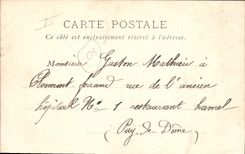 CARTE POSTALE
Ce côté est exclusivement réservé à l'adresse.
Monsieur Gaston Mathieu à
Clermont ferrand rue de l'ancien
hôpital No 1 restaurant hamel
(Puy-de-Dôme)